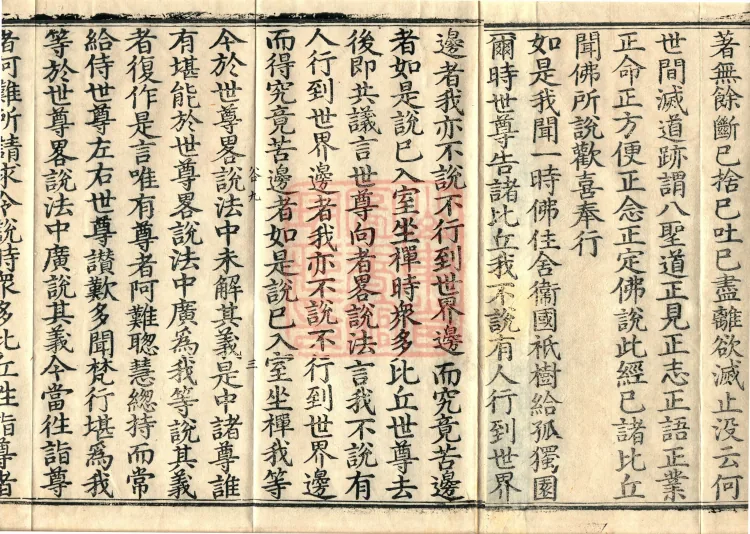 著無餘斷已捨已吐已盡離欲滅止没云何
世間滅道跡謂八聖道正見正志正語正業
正命正方便正念正定佛說此經已諸比丘
聞佛所說歡喜奉行
如是我聞一時佛住舍衞國祇樹給孤獨園
爾時世尊告諸比丘我不說有人行到世界
邊者我亦不說不行到世界邊而究竟苦邊
者如是說已入室坐禪時衆多比丘世尊去
後即共議言世尊向者畧說法言我不說有
人行到世界邊者我亦不說不行到世界邊
而得究竟苦邊者如是說已入室坐禪我等
谷九 三
今於世尊畧說法中未解其義是中諸尊誰
有堪能於世尊畧說法中廣爲我等說其義
者復作是言唯有尊者阿難聦慧總持而常
給侍世尊左右世尊讃歎多聞梵行堪爲我
等於世尊畧說法中廣說其義今當徃詣尊
者阿難所請求令說時衆多比丘徃詣尊者